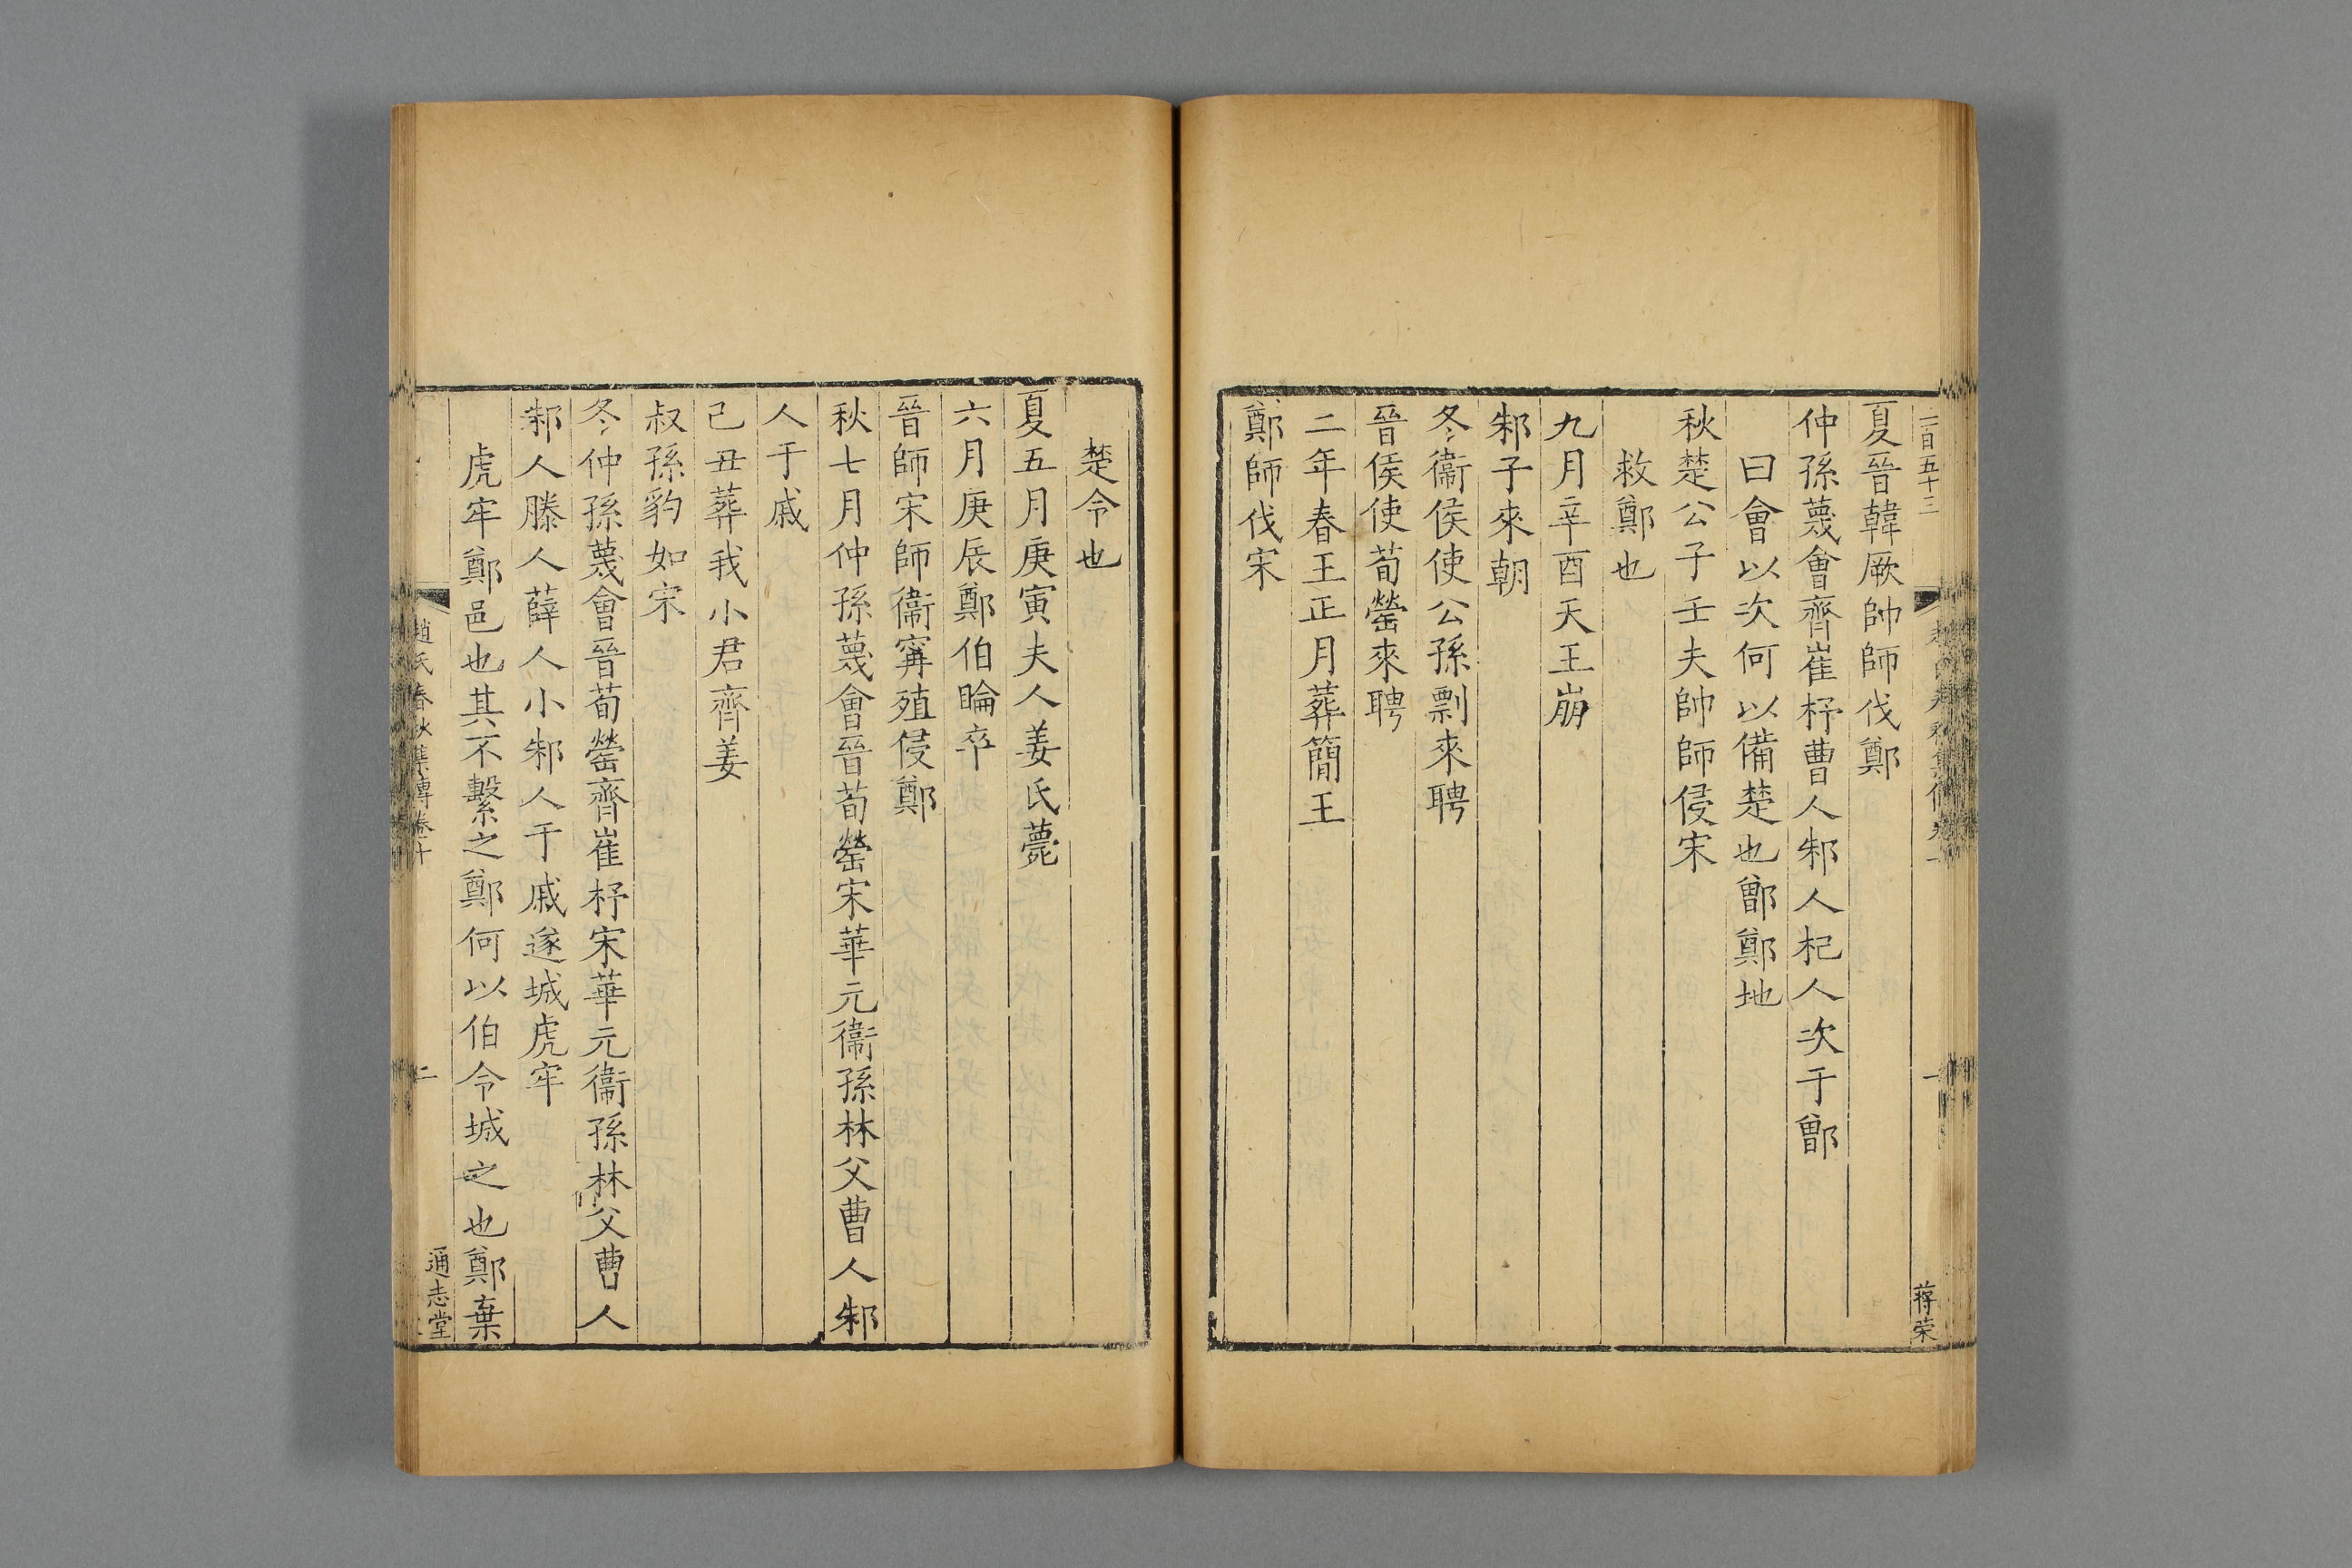 二百五十三
夏晉韓厥帥師伐鄭
仲孫蔑會齊崔杼曹人邾人杞人次于鄫
曰會以次何以備楚也鄫鄭地
秋楚公子壬夫帥師侵宋
救鄭也
九月辛酉天王崩
邾子來朝
冬衞侯使公孫剽來聘
晉侯使荀罃來聘
二年春王正月葬簡王
鄭師伐宋
一
蔣荣
楚令也
夏五月庚寅夫人姜氏薨
六月庚辰鄭伯睔卒
晉師宋師衞甯殖侵鄭
秋七月仲孫蔑會晉荀罃宋華元衞孫林父曹人邾
人于戚
己丑葬我小君齊姜
叔孫豹如宋
冬仲孫蔑會晉荀罃齊崔杼宋華元衞孫林父曹人
邾人滕人薛人小邾人于戚遂城虎牢
虎牢鄭邑也其不繫之鄭何以伯令城之也鄭棄
趙氏春秋集傳卷十
二
通志堂